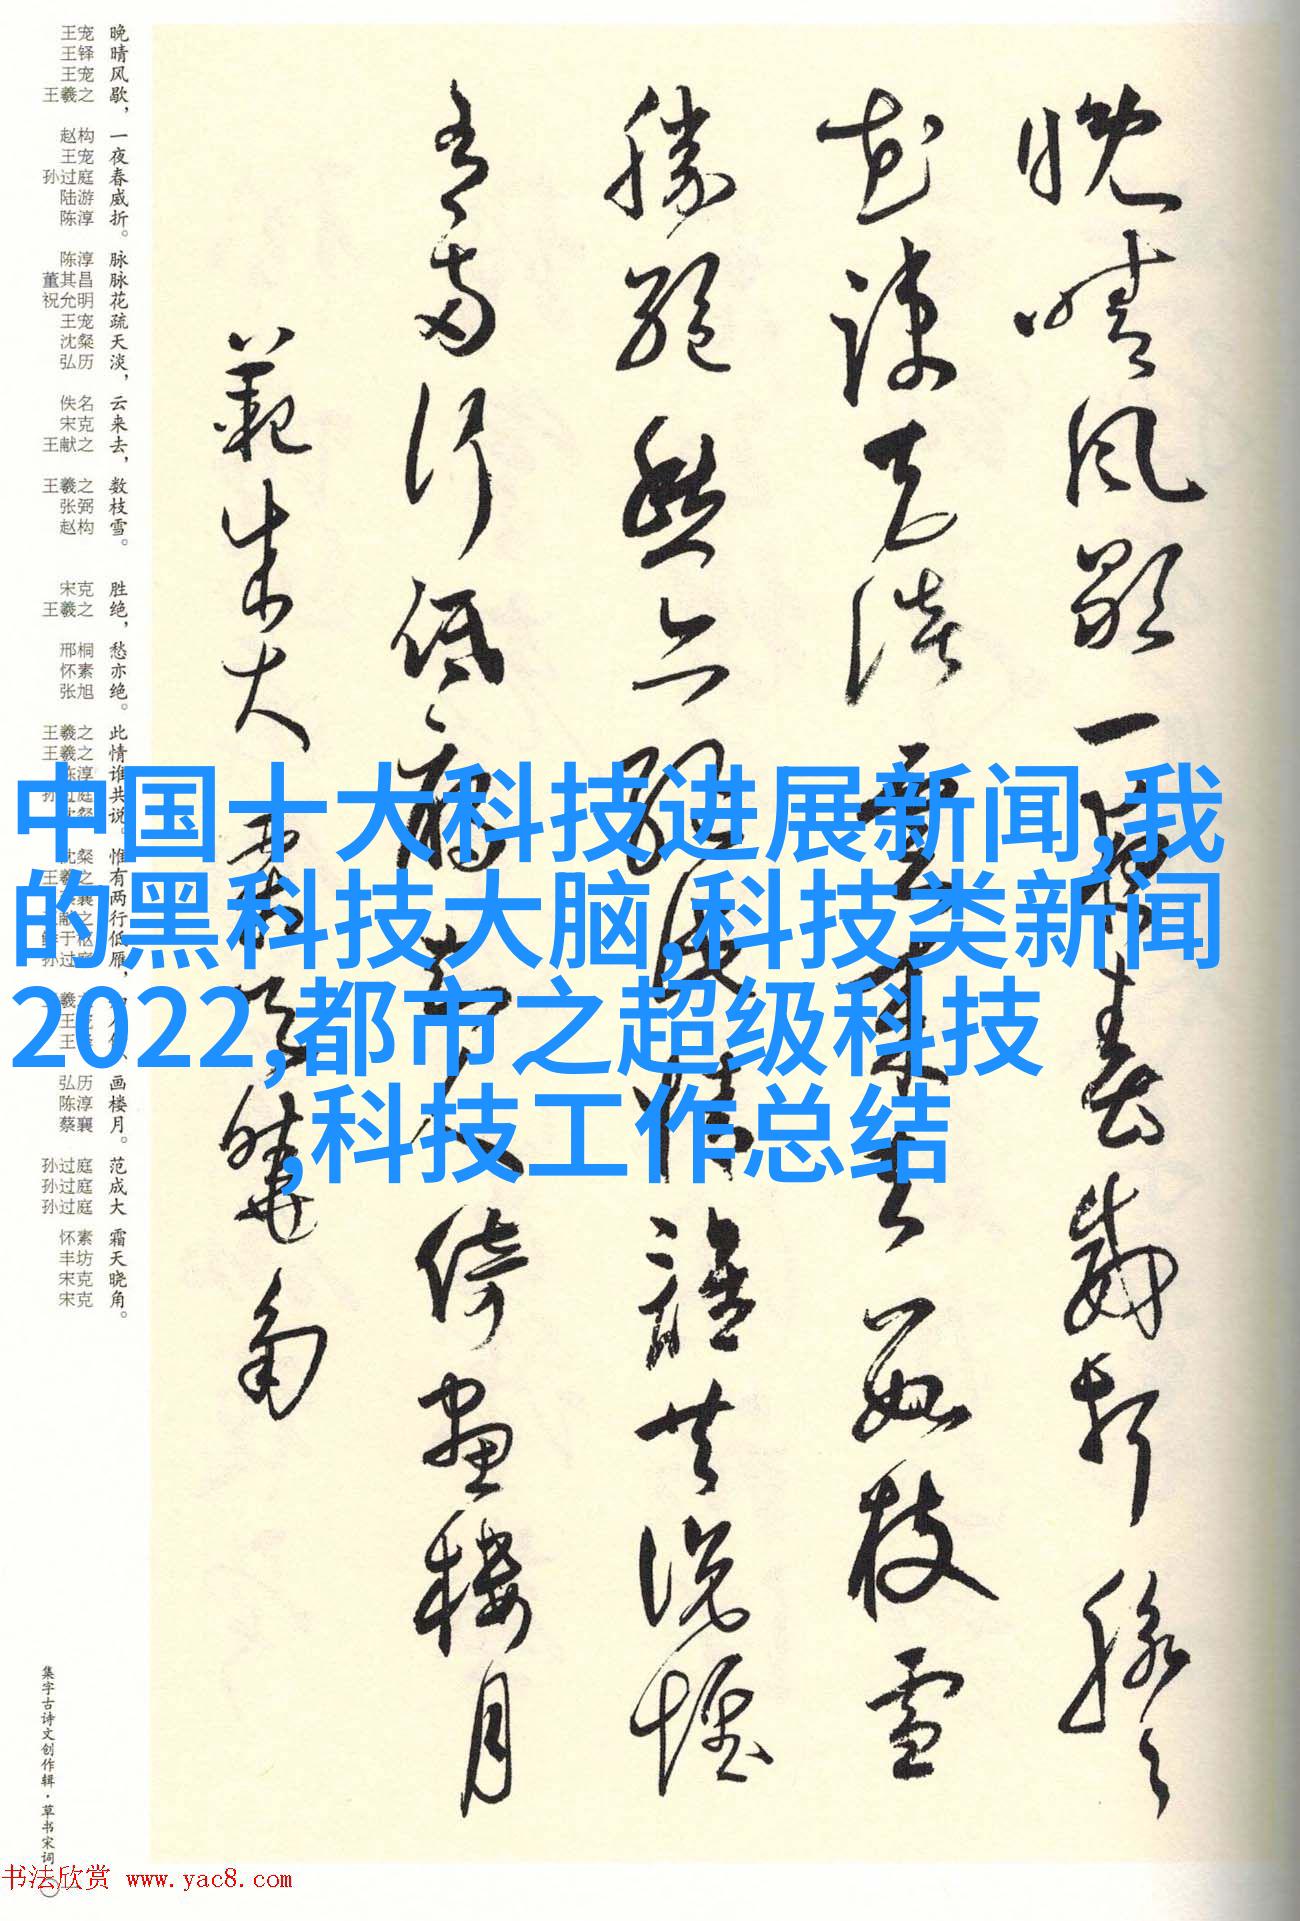 晚晴风歇一夜春威折脉脉
花疏天淡云来去数枝雪
胜绝愁亦绝此情谁共说惟
有两行低雁知人倚画楼月
范成大霜天晓角
中国十大科技进展新闻,我
的黑科技大脑,科技类新闻
2022,都市之超级科技
,科技工作总结
晚晴风歇，一夜春威折。脉脉花疏天淡，云来去，数枝雪。
胜绝，愁亦绝。此情谁共说。惟有两行低雁，画楼月。
范成大 霜天晓角。
王宠 王铎 王宠 王羲之 赵构 王宠 孙过庭 陆游 陈淳 陈淳 董其昌 祝允明 王宠 沈粲 弘历 佚名 宋克 王献之 王羲之 张弼 赵构
宋克 王羲之 邢桐 怀素 张旭 王羲之 王羲之 弘历 陈淳 蔡襄
孙过庭 孙过庭 孙过庭 怀素 丰坊 宋克 宋克
集字古诗文创作辑·草书宋词
书法欣赏 www.yac8.com